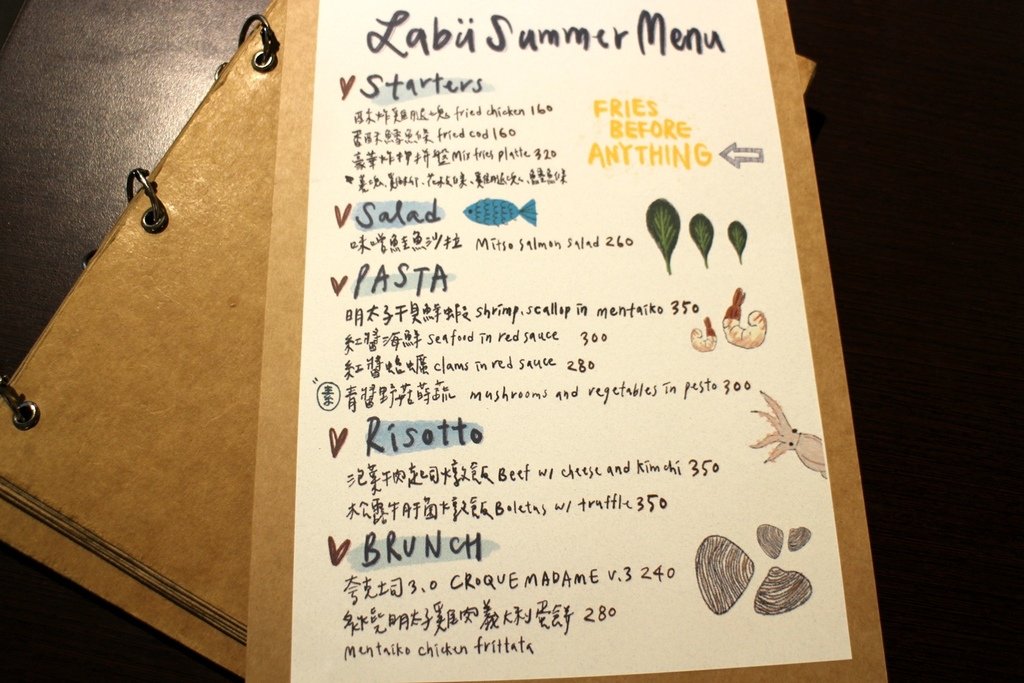 Labü Summer Menu
Starters
酥炸雞腿塊 fried chicken 160
香酥鱈魚條 fried cod 160
豪華炸物拼盤 Mix fries platte 320
FRIES
BEFORE
ANYTHING
Salad
味噌鮭魚沙拉 Mitso salmon salad 260
PASTA
明太子干貝鮮蝦 shrimp, scallop in mentaiko 350
紅醬海鮮 seafood in red sauce 300
紅醬蛤蠣 clams in red sauce 280
素 青醬野菇時蔬 mushrooms and vegetables in pesto 300
Risotto
泡菜牛肉起司燉飯 Beef w/ cheese and kimchi 350
松露牛肝菌燉飯 Boletus w/ truffle 350
BRUNCH
夸克吐司 3.0 CROQUE MADAME V.3 240
明太子雞肉義大利蛋餅 280
mentaiko chicken frittata